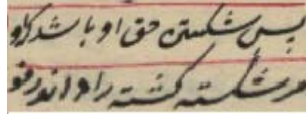 پس شکستن حق او باشد که او
مر شکسته گشته را داند رفو